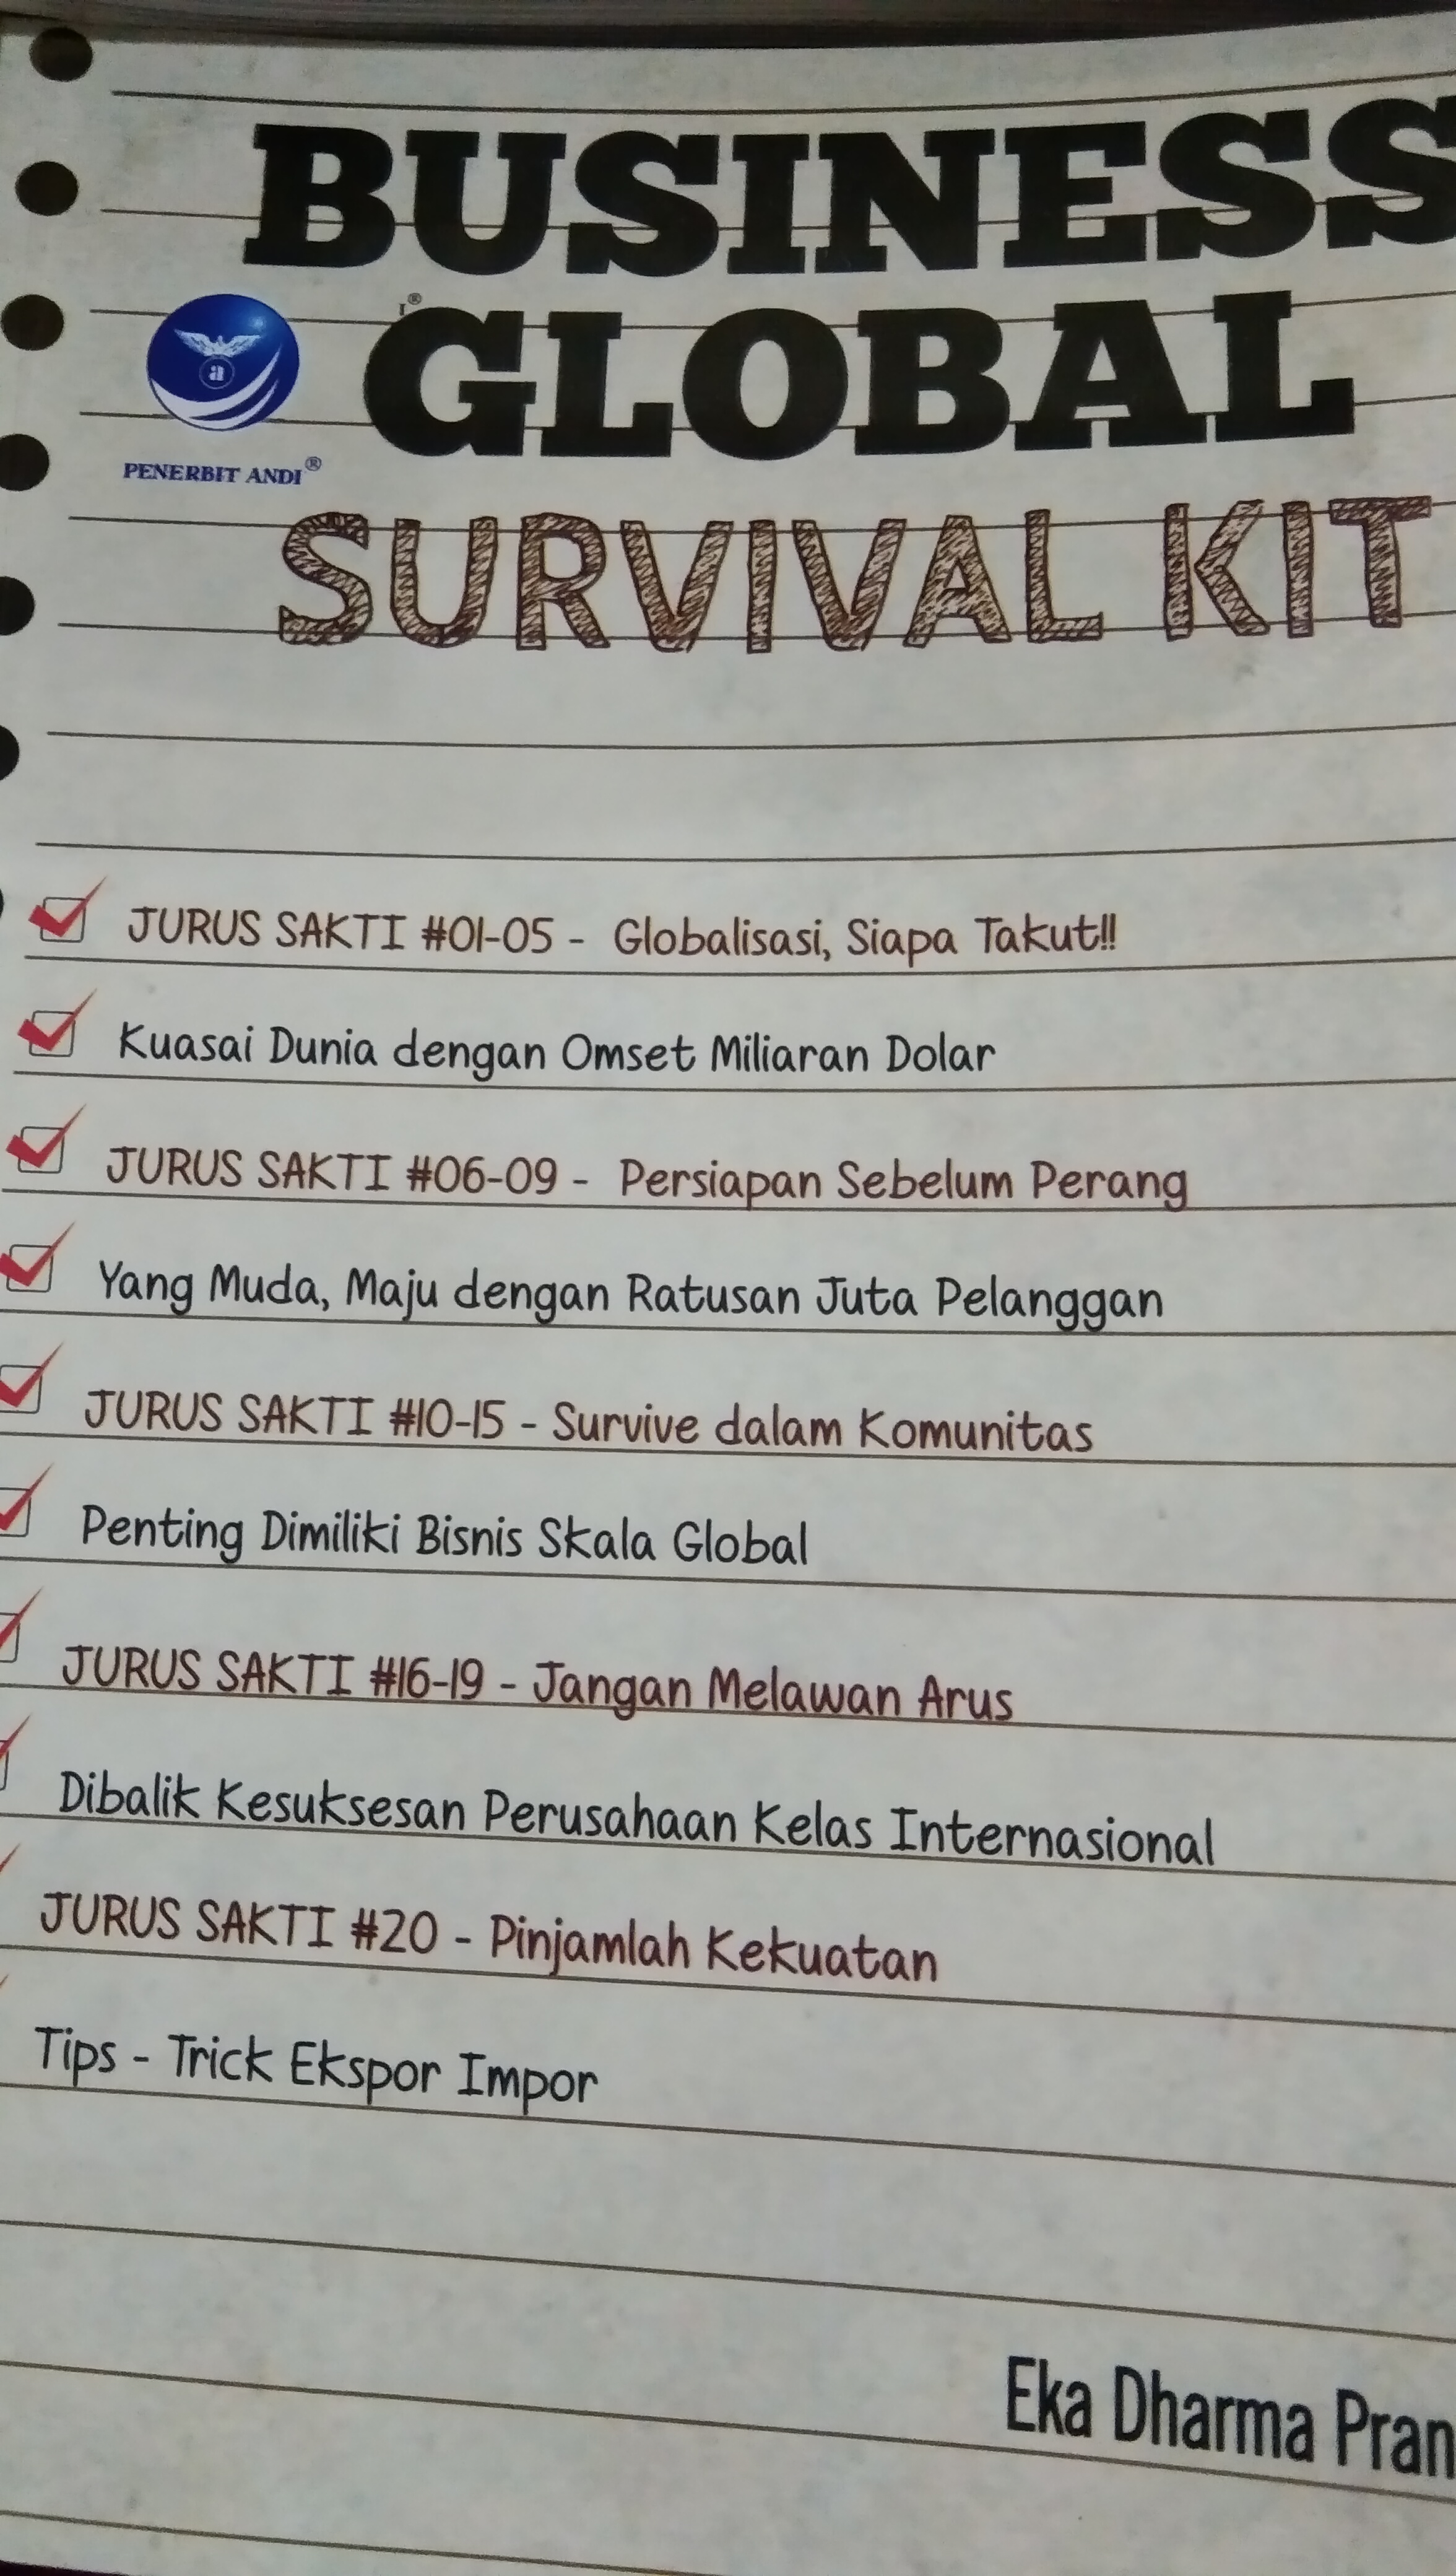 BUSINESS
GLOBAL
PENERBIT ANDI®
SURVIVAL KIT
JURUS SAKTI #01-05 - Globalisasi, Siapa Takut!!
Kuasai Dunia dengan Omset Miliaran Dolar
JURUS SAKTI #06-09 - Persiapan Sebelum Perang
Yang Muda, Maju dengan Ratusan Juta Pelanggan
JURUS SAKTI #10-15 - Survive dalam Komunitas
Penting Dimiliki Bisnis Skala Global
JURUS SAKTI #16-19 - Jangan Melawan Arus
Dibalik Kesuksesan Perusahaan Kelas Internasional
JURUS SAKTI #20 - Pinjamlah Kekuatan
Tips - Trick Ekspor Impor
Eka Dharma Pran